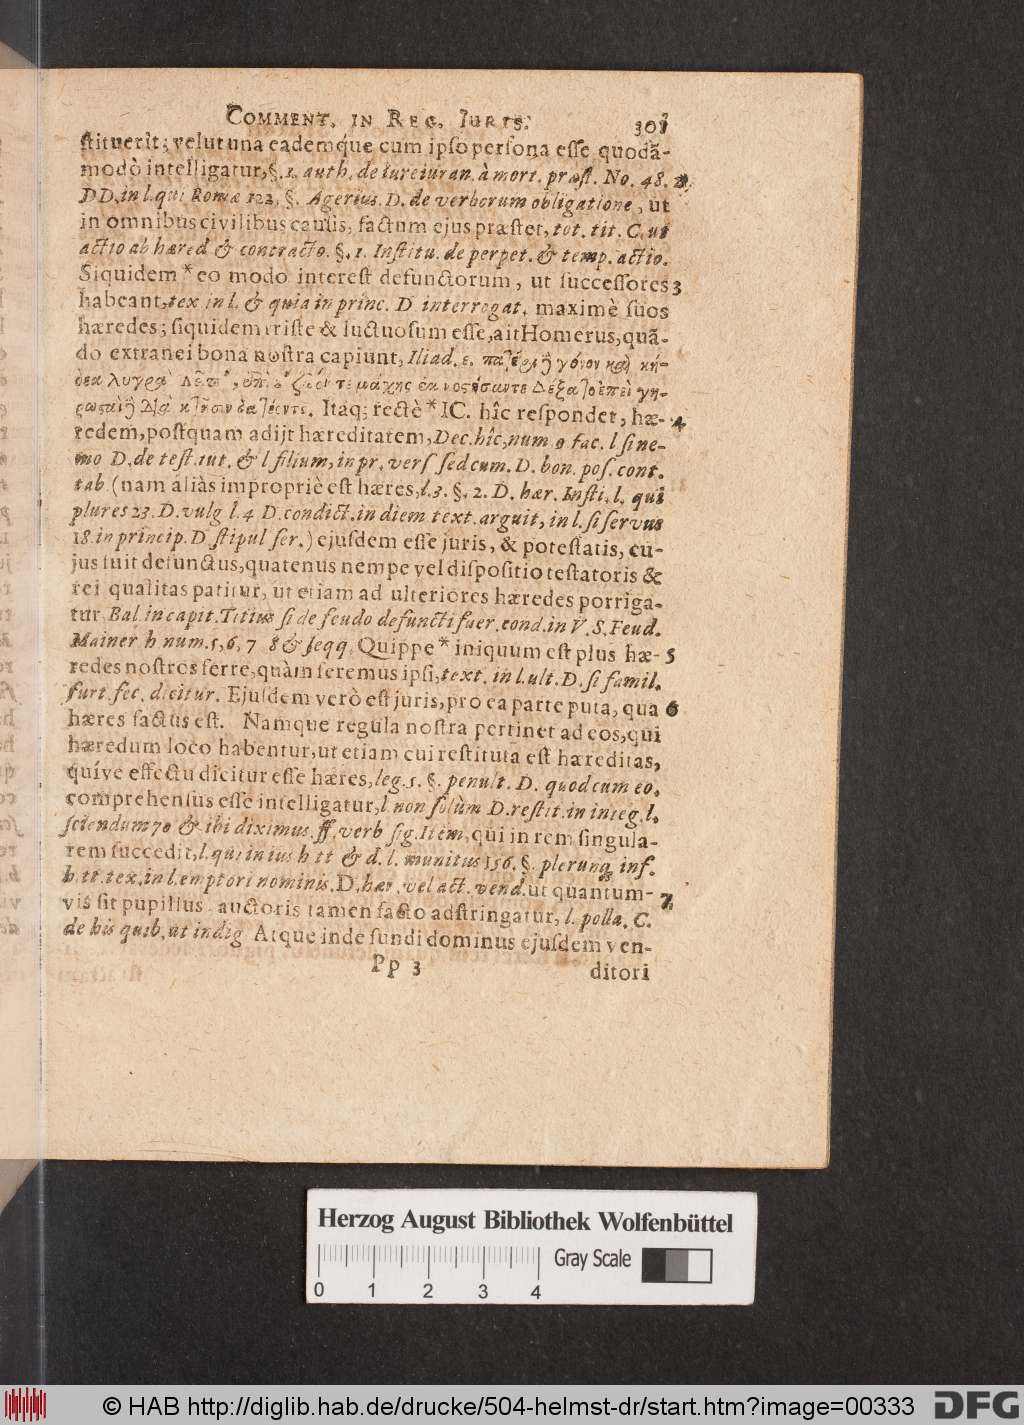 COMMENT. IN REG. IURIS. 301
stituerit; velut una eademq́ue cum ipso persona esse quodã-
modò intelligatur, §. 1. auth. de iureiuran. à mort. præst. No. 48. 2.
DD. in l. qui Romæ 122. §. Agerius. D. de verborum obligatione, ut
in omnibus civilibus causis, factum ejus præstet, tot. tit. C. ut
actio ab hæred & contracto. §. 1. Institu. de perpet. & temp. actio.
Siquidem * eo modo interest defunctorum, ut successores 3
habeant, tex in l. & quia in princ. D interrogat. maximè suos
hæredes; siquidem triste & luctuosum esse, ait Homerus, quã-
do extranei bona nostra capiunt, Iliad. ε.
Itaq; rectè * IC. hîc respondet, hæ- 4
redem, postquam adijt hæreditatem, Dec. hîc, num 9 fac. l si ne-
mo D. de test. tut. & l filium, in pr. vers sed cum. D. bon. pos. cont.
tab (nam aliàs impropriè est hæres, l. 3. §. 2. D. hær. Insti, l. qui
plures 23. D. vulg l. 4 D. condict. in diem text. arguit, in l. si servus
18. in princip. D stipul ser.) ejusdem esse juris, & potestatis, cu-
jus fuit defunctus, quatenus nempe vel dispositio testatoris &
rei qualitas patitur, ut etiam ad ulteriores hæredes porriga-
tur Bal. in capit. Titius si de feudo defuncti fuer. cond. in V. S. Feud.
Mainer h num. 5, 6, 7 8 & seqq. Quippe * iniquum est plus hæ- 5
redes nostros ferre, quàm feremus ipsi, text. in l. ult. D. si famil.
furt. fec. dicitur. Ejusdem verò est juris, pro ea parte puta, qua 6
hæres factus est. Namque regula nostra pertinet ad eos, qui
hæredum loco habentur, ut etiam cui restituta est hæreditas,
quíve effectu dicitur esse hæres, leg. 5. §. penult. D. quod cum eo.
comprehensus esse intelligatur, l non solùm D. restit. in integ. l.
sciendum 70 & ibi diximus. ff. verb sig. Item, qui in rem singula-
rem succedit, l. qui in ius h tt & d. l. munitus 156. §. plerunq; inf.
h tt. tex. in l. emptori nominis. D. hær. vel act. vend. ut quantum- 7.
vis sit pupillus auctoris tamen facto adstringatur, l. polla. C.
de his quib. ut indig Atque inde fundi dominus ejusdem ven-
Pp 3 ditori
Herzog August Bibliothek Wolfenbüttel
Gray Scale
0 1 2 3 4
© HAB http://diglib.hab.de/drucke/504-helmst-dr/start.htm?image=00333
DFG